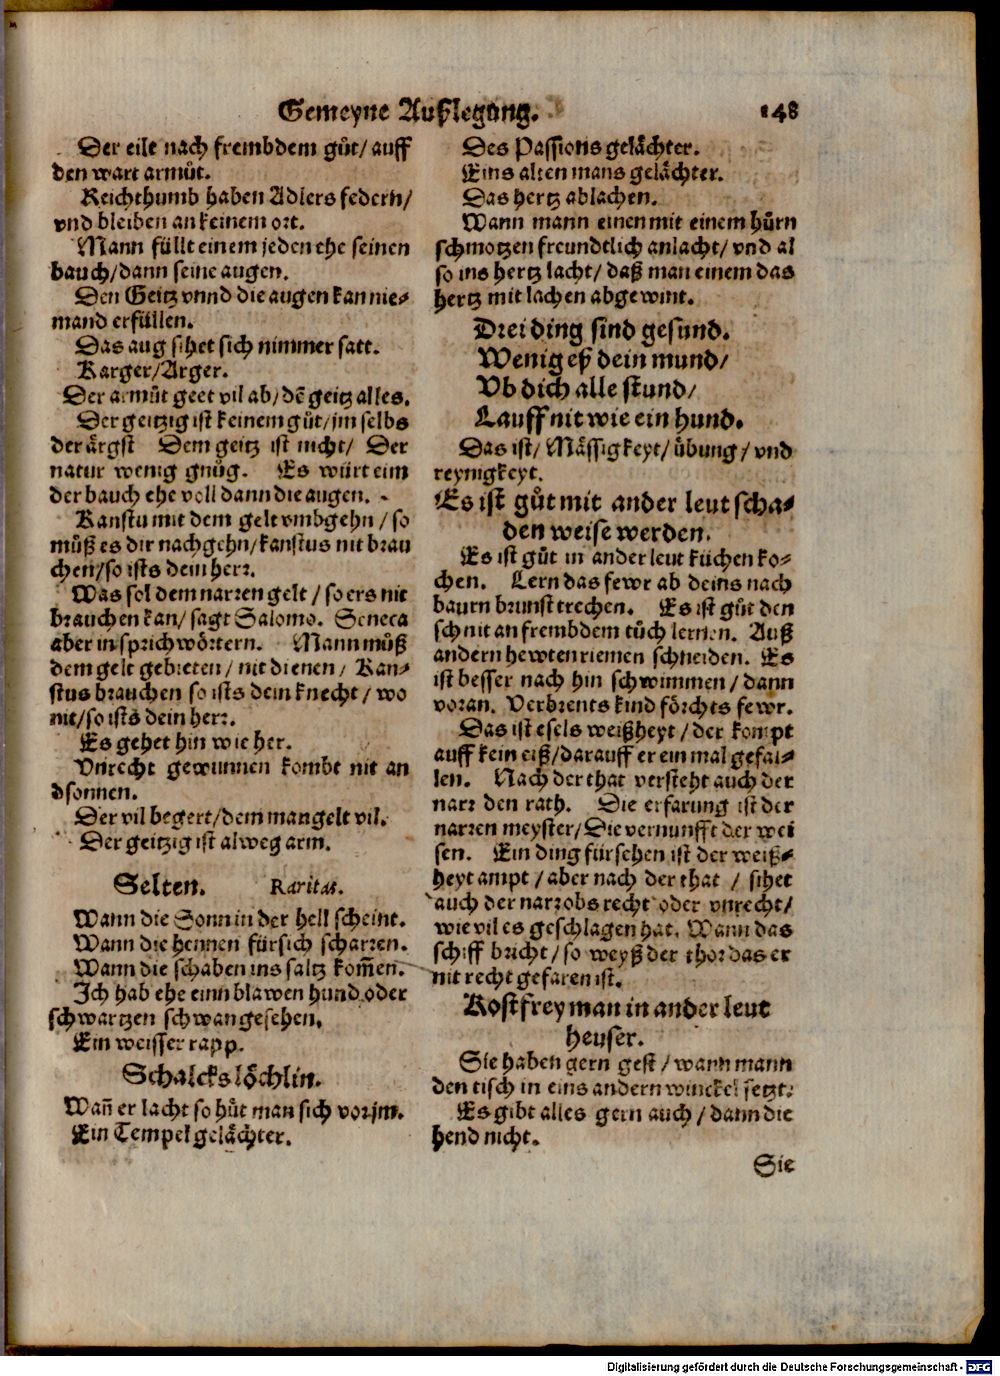 Gemeyne Außlegung.
148
Der eile nach frembdem gůt/ auff
den wart armůt.
Reichthumb haben Adlers federn/
vnd bleiben an keinem ort.
Mann füllt einem jeden ehe seinen
bauch/dann seine augen.
Den Geitz vnnd die augen kan nie-
mand erfüllen.
Das aug sihet sich nimmer satt.
Karger/Arger.
Der armůt geet vil ab/dẽ geitz alles.
Der geitzig ist keinem gůt/jm selbs
der ärgst Dem geitz ist nicht/ Der
natur wenig gnůg. Es würt eim
der bauch ehe voll dann die augen.
Kanstu mit dem gelt vmbgehn /so
můß es dir nachgehn/kanstus nit brau
chen/so ists dein herr.
Was sol dem narren gelt /so ers nit
brauchen kan/ sagt Salomo. Seneca
aber in sprichwörtern. Mann můß
dem gelt gebieten/ nit dienen/ Kan-
stus brauchen so ists dein knecht/ wo
nit/so ists dein herr.
Es gehet hin wie her.
Vnrecht gewunnen kombt nit an
dsonnen.
Der vil begert/dem mangelt vil.
Der geitzig ist alweg arm.
Selten. Raritas.
Wann die Sonn in der hell scheint.
Wann die hennen fürsich scharren.
Wann die schaben ins saltz kom̃en.
Ich hab ehe einn blawen hund oder
schwartzen schwan gesehen.
Ein weisser rapp.
Schalckslöchlin.
Wañ er lacht so hůt man sich vor jm.
Ein Tempel gelächter.
Des Passions gelächter.
Eins alten mans gelächter.
Das hertz ablachen.
Wann mann einen mit einem hůrn
schmotzen freundtlich anlacht/ vnd al
so ins hertz lacht/ daß man einem das
hertz mit lachen abgewint.
Drei ding sind gesund.
Wenig eß dein mund/
Vb dich alle stund/
Lauff nit wie ein hund.
Das ist/ Mässigkeyt/ übung/ vnd
reynigkeyt.
Es ist gůt mit ander leut scha-
den weise werden.
Es ist gůt in ander leut küchen ko-
chen. Lern das fewr ab deins nach
baurn brunst rechen. Es ist gůt den
schnit an frembdem tůch lernen. Auß
andern hewten riemen schneiden. Es
ist besser nach hin schwimmen/ dann
voran. Verbrents kind förchts fewr.
Das ist esels weißheyt/ der kompt
auff kein eiß/darauff er ein mal gefal-
len. Nach der that versteht auch der
narr den rath. Die erfarung ist der
narren meyster/Die vernunfft der wei
sen. Ein ding fürsehen ist der weiß-
heyt ampt /aber nach der that / sihet
auch der narr obs recht oder vnrecht/
wie vil es geschlagen hat. Wann das
schiff bricht/so weyß der thor das er
nit recht gefaren ist.
Kostfrey man in ander leut
heuser.
Sie haben gern gest/ wann mann
den tisch in eins andern winckel setzt.
Es gibt alles gern auch/ dann die
hend nicht.
Sie
Digitalisierung gefördert durch die Deutsche Forschungsgemeinschaft - DFG